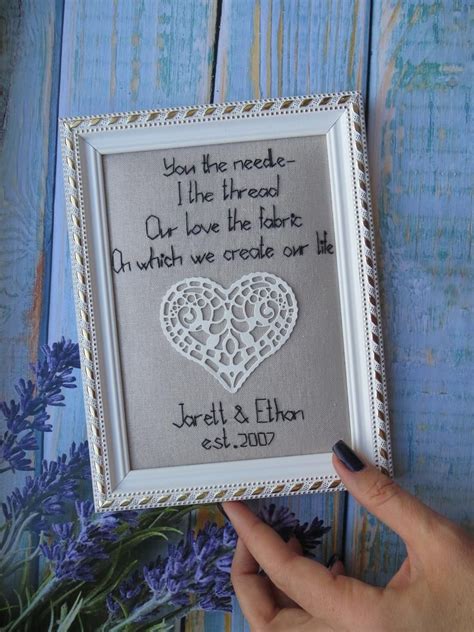 You the needle-
I the thread
Our love the fabric
On which we create our life
Jarett & Ethan
est.2007